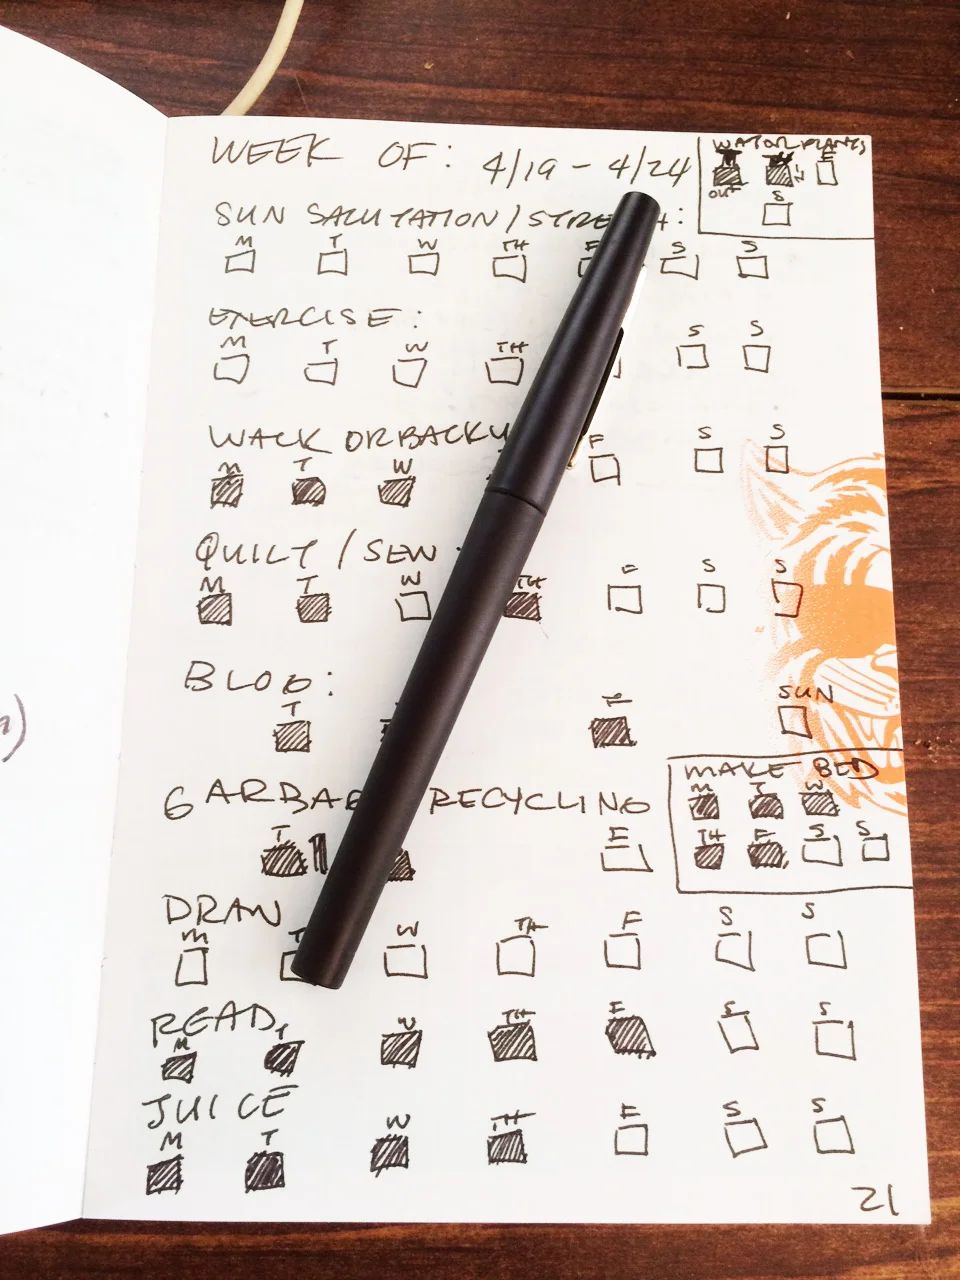 WEEK OF: 4/19 - 4/24
WATOR PLANTS
F
OUT
S
SUN SALUTATION / STRETCH:
M T W TH F S S
EXERCISE:
M T W TH S S
WALK OR BACKY
M T W F S S
QUILT / SEW:
M T W TH F S S
BLOG:
T SUN
MAKE BED
M T W
TH F S S
GARBAGE RECYCLING
T F
DRAW
M T W TH F S S
READ
M T W TH F S S
JUICE
M T W TH F S S
21